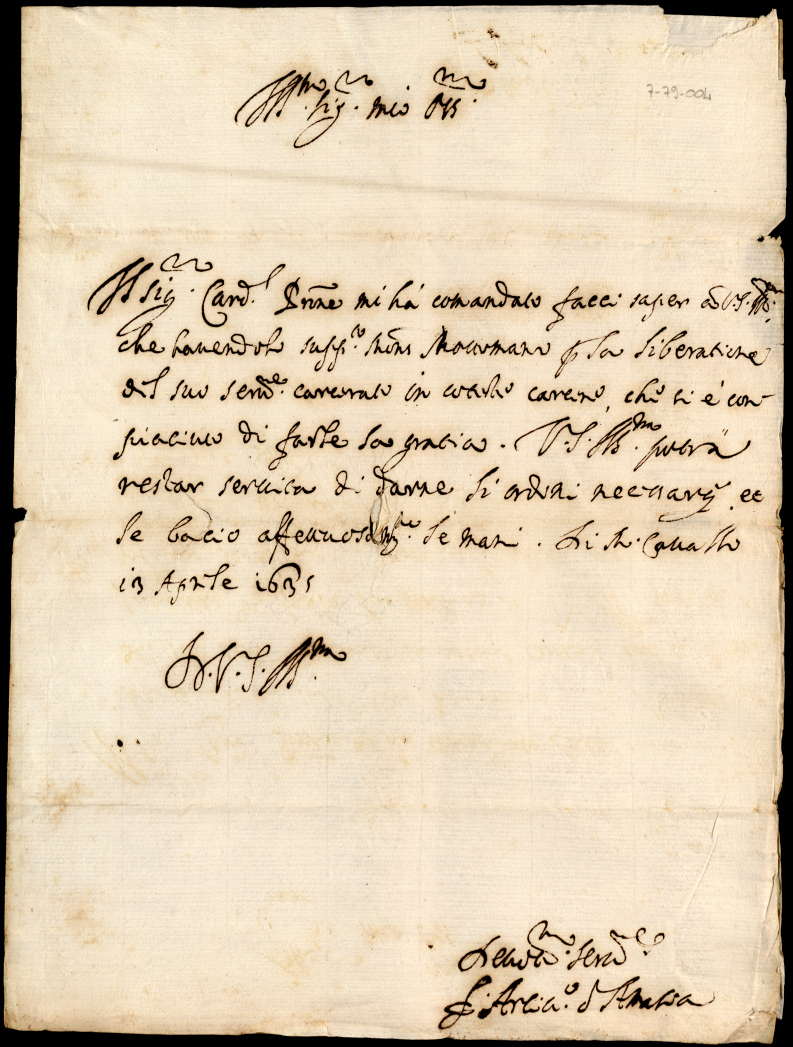 Ill.mo Sig.r mio Oss.
7-79-004
Il Sig.r Card.l Prône mi hà comandato facci saper à V.S. Ill.ma
che havendolo supp.to Mons p la liberatione
del suo serv.re carcerato in cotesto carcere, che si è con-
piaciuto di farle la gratia. V.S. Ill.ma potrà
restar servita di darne li ordini necessarij. et
le bacio affettuosam.te le mani. Di M. Cavallo
13 Aprile 1635
D. V. S. Ill.ma
Devot.mo Serv.re
f. Arciv.o d'Amasia